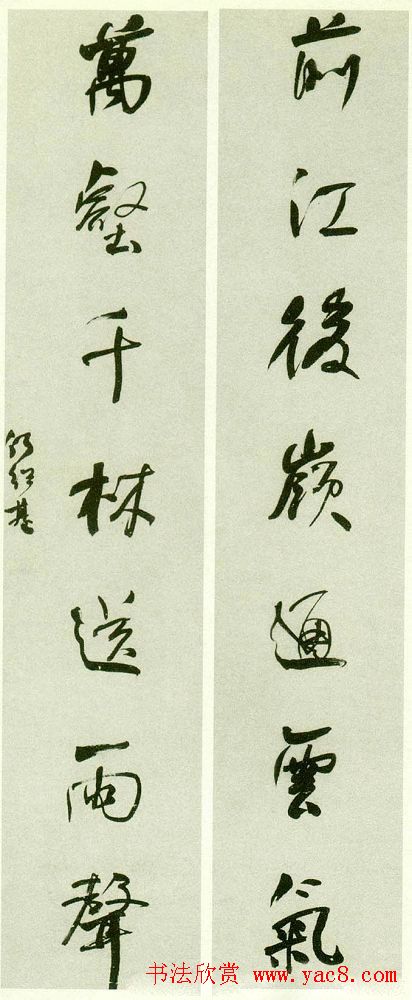 前江後嶺通雲氣
萬壑千林送雨聲
何紹基
书法欣赏 www.yac8.com